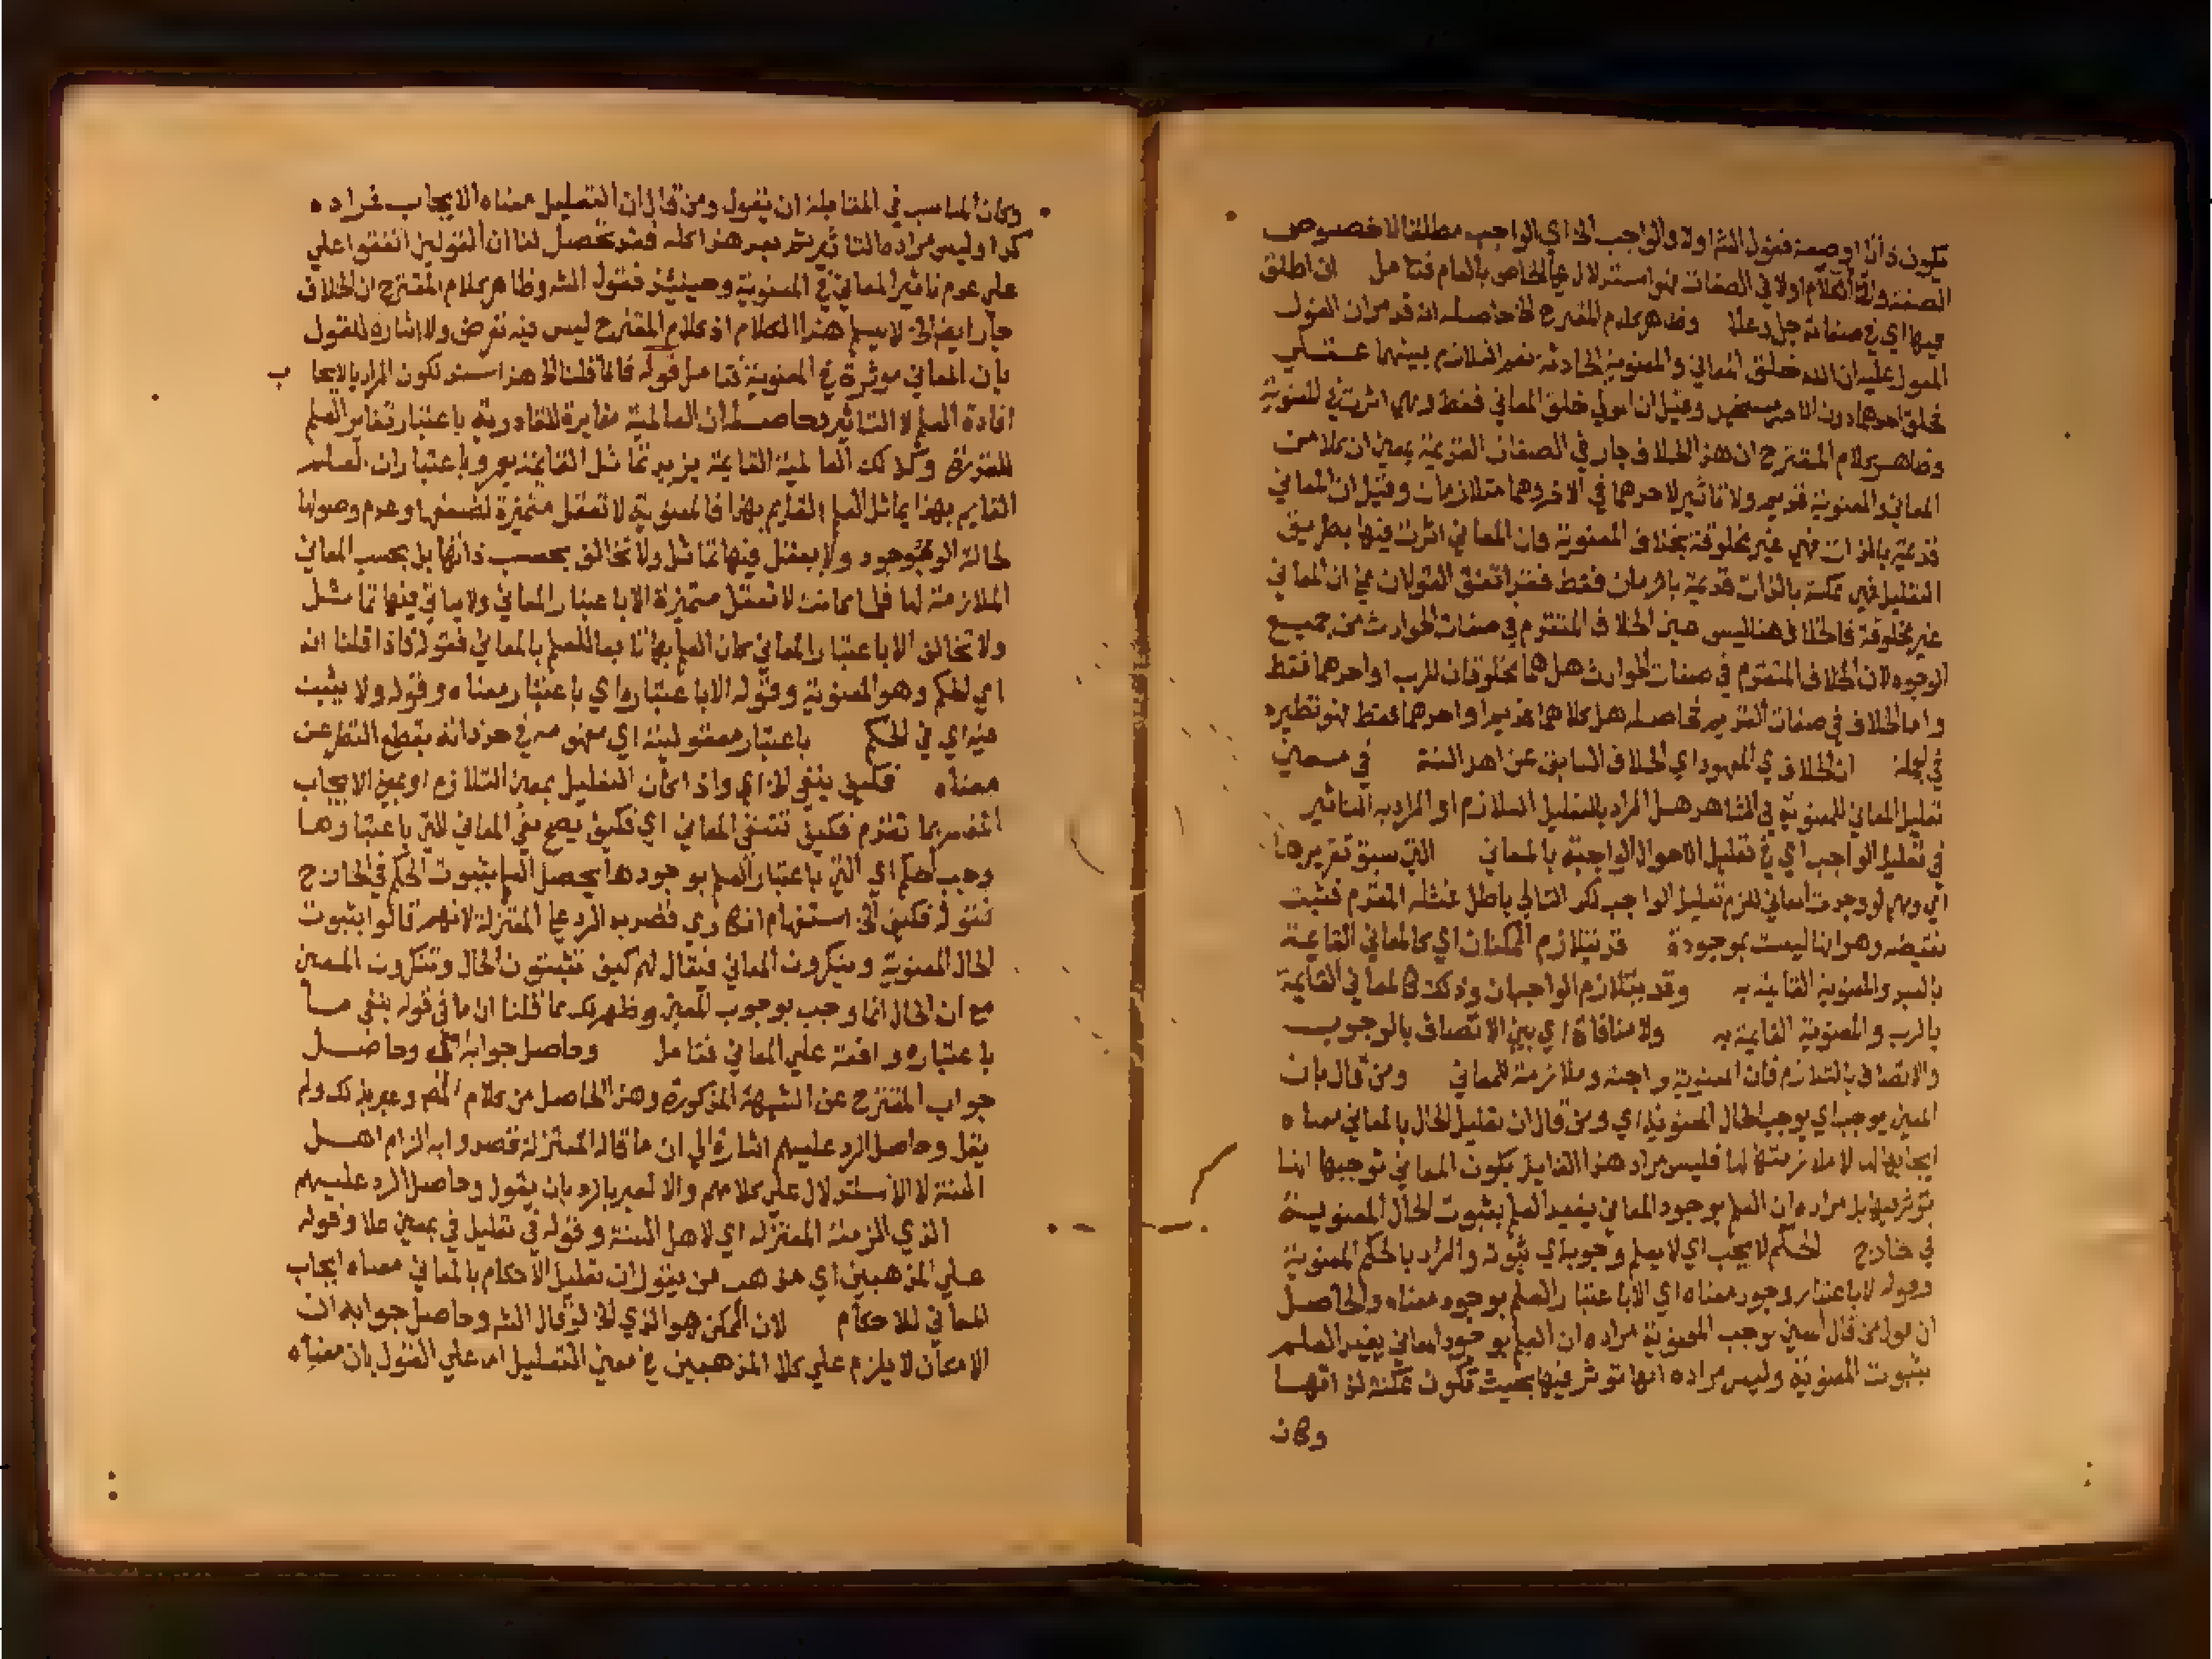 فيكون ذاتا او صفة فقول الشر اولا والواجب الخ اي الواجب مطلقا لا خصوص
الصفة ولة الكلام اولا في الصفات فهو استدلال علي الخاص بالعام فتامل ان اطلق
فيها اي في صفاته جل وعلا وظاهر كلام المقترح الخ حاصله انه قد مر ان القول
المعول عليه ان الله خلق المعاني والمعنوية الحادثة نعم التلازم بينهما عقلي
فخلق احدهما دون الاخر مستحيل وقيل ان المولي خلق المعاني فقط وهي اثرت في المعنوية
وظاهر كلام المقترح ان هذا الخلاف جار في الصفات القديمة بمعني ان كلا من
المعاني والمعنوية قديم ولا تاثير لاحدهما في الاخر وهما متلازمان وقيل ان المعاني
قديمة بالذات فهي غير مخلوقة بخلاف المعنوية فان المعاني اثرت فيها بطريق
التعليل فهي ممكنة بالذات قديمة بالزمان فقط فقد اتفق القولان علي ان المعاني
غير مخلوقة فالخلاف هنا ليس عين الخلاف المتقدم في صفات الحوادث من جميع
الوجوه لان الخلاف المتقدم في صفات الحوادث هل هما مخلوقان للرب او احدهما فقط
واما الخلاف في صفات القديم فحاصله هل كلاهما قديم او احدهما فقط فهو نظيره
في الجملة ان الخلاف ي المعهود اي الخلاف السابق عن اهل السنة في معني
تعليل المعاني للمعنوية في الشاهد هل المراد بالتعليل التلازم او المراد به التاثير
في تعليل الواجب اي في تعليل الاحوال الواجبة بالمعاني التي سبق تقريرها
اي وهي لو وجدت المعاني للزم تعليل الواجب لكن التالي باطل فمثله المقدم فثبت
نقيضه وهو انها ليست بموجودة قد يتلازم الممكنان اي كالمعاني القائمة
بالعبد والمعنوية القائمة به وقد يتلازم الواجبان وذلك كالمعاني القايمة
بالرب والمعنوية القايمة به ولا منافاة اي بين الاتصاف بالوجوب
والاتصاف بالتلازم فان المعنوية واجبة وملازمة للمعاني ومن قال بان
المعني يوجب اي يوجب الحال المعنوية اي ومن قال ان تعليل الحال بالمعاني معناه
ايجابها له لا ملازمتها لها فليس مراد هذا القايل بكون المعاني توجبها انها
توثر فيها بل مراده ان العلم بوجود المعاني يفيد العلم بثبوت الحال المعنوية
في خارج الحكم لا يجب اي لا يعلم وجوبه اي ثبوته والمراد بالحكم المعنوية
وقوله لا باعتبار وجود معناه اي الا باعتبار العلم بوجود معناه والحاصل
ان قول من قال المعني يوجب المعنوية مراده ان العلم بوجود المعاني يفيد العلم
بثبوت المعنوية وليس مراده انها توثر فيها بحيث تكون ممكنة لذاتها
وكان
وكان المناسب في المقابلة ان يقول ومن قال ان التعليل معناه الايجاب فمراده
كذا وليس مراده التاثير ثم بعد هذا كله فقد تحصل لنا ان القولين اتفقوا علي
علي عدم تاثير المعاني في المعنوية وحينيذ فقول الشر وظاهر كلام المقترح ان الخلاف
جار ايضا الخ لا يسلم هذا الكلام اذ كلام المقترح ليس فيه تعرض ولا اشارة للقول
بان المعاني موثرة في المعنوية فتامل قوله فانما قلنا الخ هذا سند لكون المراد بالايجا ب
افادة العلم لا التاثير وحاصله ان العالمية مغايرة للقادرية باعتبار تغاير العلم
للقدرة وكذلك العالمية القايمة بزيد تماثل القايمة بعمرو باعتبار ان العلم
القايم بهذا يماثل العلم القايم بهذا فالمعنوية لا تعقل متميزة لضعفها وعدم وصولها
لحالة الوجود ولا يعقل فيها تماثل ولا تخالف بحسب ذاتها بل بحسب المعاني
الملازمة لها فلما كانت لا تعقل متميزة الا باعتبار المعاني ولا ياتي فيها تماثل
ولا تخالف الا باعتبار المعاني كان العلم بها تابعا للعلم بالمعاني فقوله فاذا قلنا انه
اي الحكم وهو المعنوية وقوله الا باعتباره اي باعتبار معناه وقوله ولا يثبت
فيه اي في الحكم باعتبار معقوليته اي مفهومه في حد ذاته بقطع النظر عن
معناه فكيف ينفي الخ اي واذا كان التعليل بمعني التلازم او بمعني الايجاب
المفسر بما تقدم فكيف تنتفي المعاني اي فكيف يصح نفي المعاني التي باعتبارها
وجب الحكم اي التي باعتبار العلم بوجودها يحصل العلم بثبوت الحكم في الخارج
فقوله فكيف الخ استفهام انكاري قصد به الرد علي المعتزلة لانهم قالوا بثبوت
الحال المعنوية وينكرون المعاني فيقال لهم كيف تثبتون الحال وتنكرون المعني
مع ان الحال انما وجب بوجوب المعني وظهر لك مما قلنا ان ما في قوله بنفي ما
باعتباره واقعة علي المعاني فتامل وحاصل جوابه الخ وحاصل
جواب المقترح عن الشبهة المذكورة وهذا الحاصل من كلام المص وعبر بذلك ولم
يقل وحاصل الرد عليهم اشارة الي ان ما قاله المعتزلة قصدوا به الزام اهل
السنة لا الاستدلال علي كلامهم والا لعبر بالرد بان يقول وحاصل الرد عليهم
الذي الزمته المعتزلة اي لاهل السنة وقوله في تعليل في بمعني علا وقوله
علي المذهبين اي مذهب من يقول ان تعليل الاحكام بالمعاني معناه ايجاب
المعاني للاحكام لان الممكن هو الذي الخ لو قال الشر وحاصل جوابه ان
الامكان لا يلزم علي كلا المذهبين في معني التعليل اما علي القول بان معناه